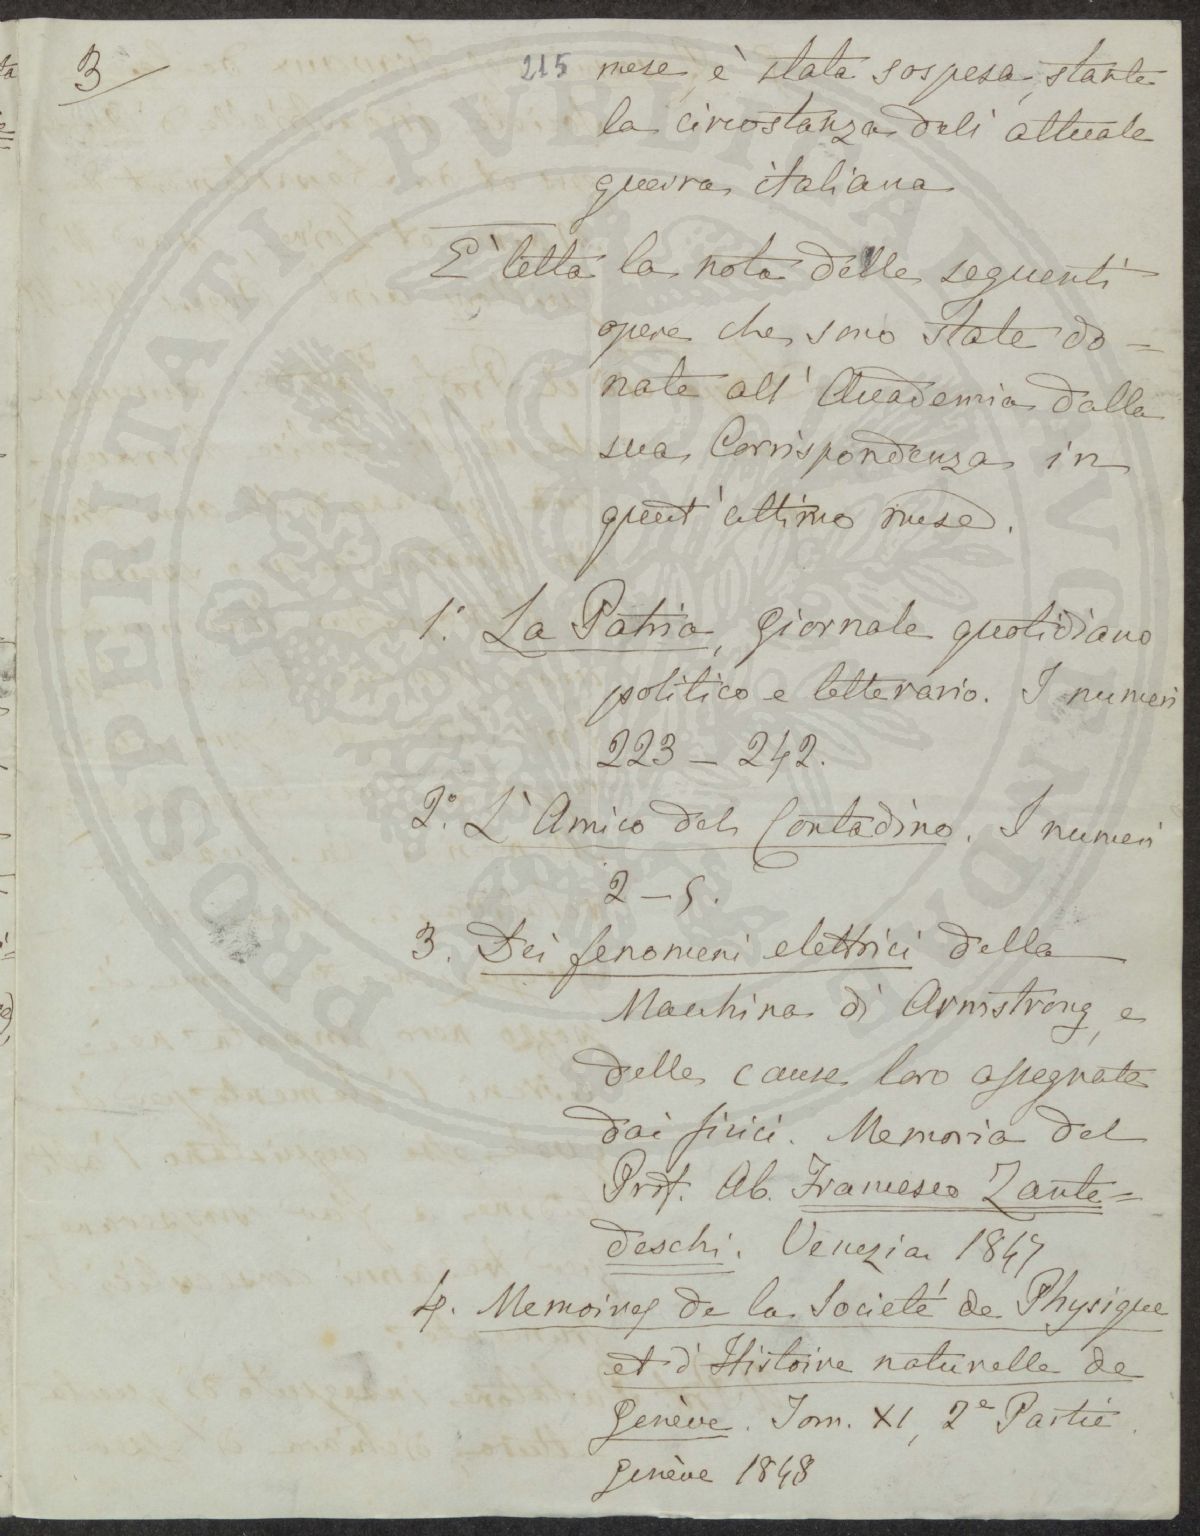 3
215 mese, è stata sospesa, stante
la circostanza dell' attuale
guerra italiana
E' letta la nota delle seguenti
opere che sono state do=
nate all' Accademia dalla
sua Corrispondenza in
quest' ultimo mese.
1.° La Patria, giornale quotidiano
politico e letterario. I numeri
223 – 242.
2.° L' Amico del Contadino. I numeri
2 – 5.
3. Dei fenomeni elettrici della
Macchina di Armstrong, e
delle cause loro assegnate
dai fisici. Memoria del
Prof. Ab. Francesco Zante=
deschi. Venezia 1847
4. Memoires de la Societé de Physique
et d' Histoire naturelle de
Genève. Tom. XI, 2e Partie.
Genève 1848
PROSPERITATI PVBLICAE AVGENDAE